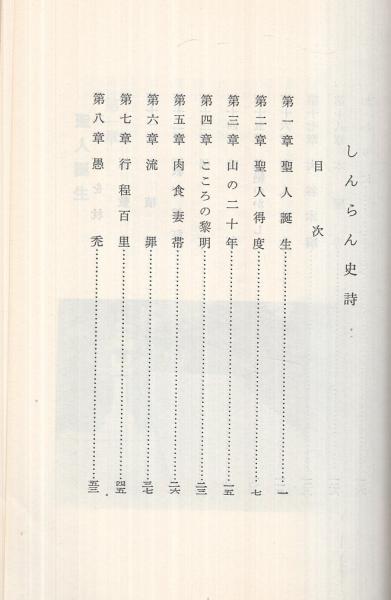 しんらん史詩
目次
第一章 聖人誕生……一
第二章 聖人得度……七
第三章 山の二十年……一五
第四章 こころの黎明……二三
第五章 肉食妻帯……二六
第六章 流罪……三七
第七章 行程百里……四五
第八章 愚禿……五三